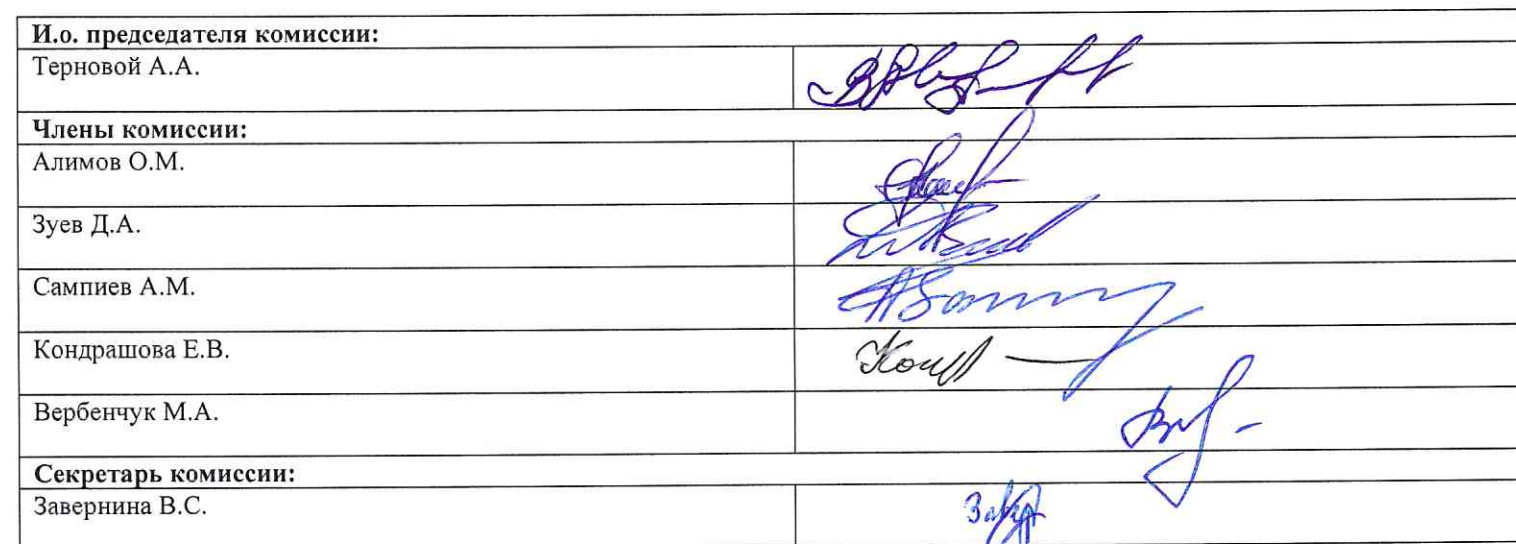 И.о. председателя комиссии:
Терновой А.А.
Члены комиссии:
Алимов О.М.
Зуев Д.А.
Сампиев А.М.
Кондрашова Е.В.
Вербенчук М.А.
Секретарь комиссии:
Завернина В.С.